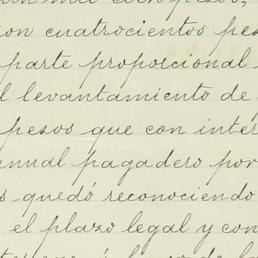 mil cien pesos,
con cuatrocientos pes
parte proporcional
l levantamiento de
pesos que con inter
anual pagadero por
s quedó reconociendo
el plazo legal y con